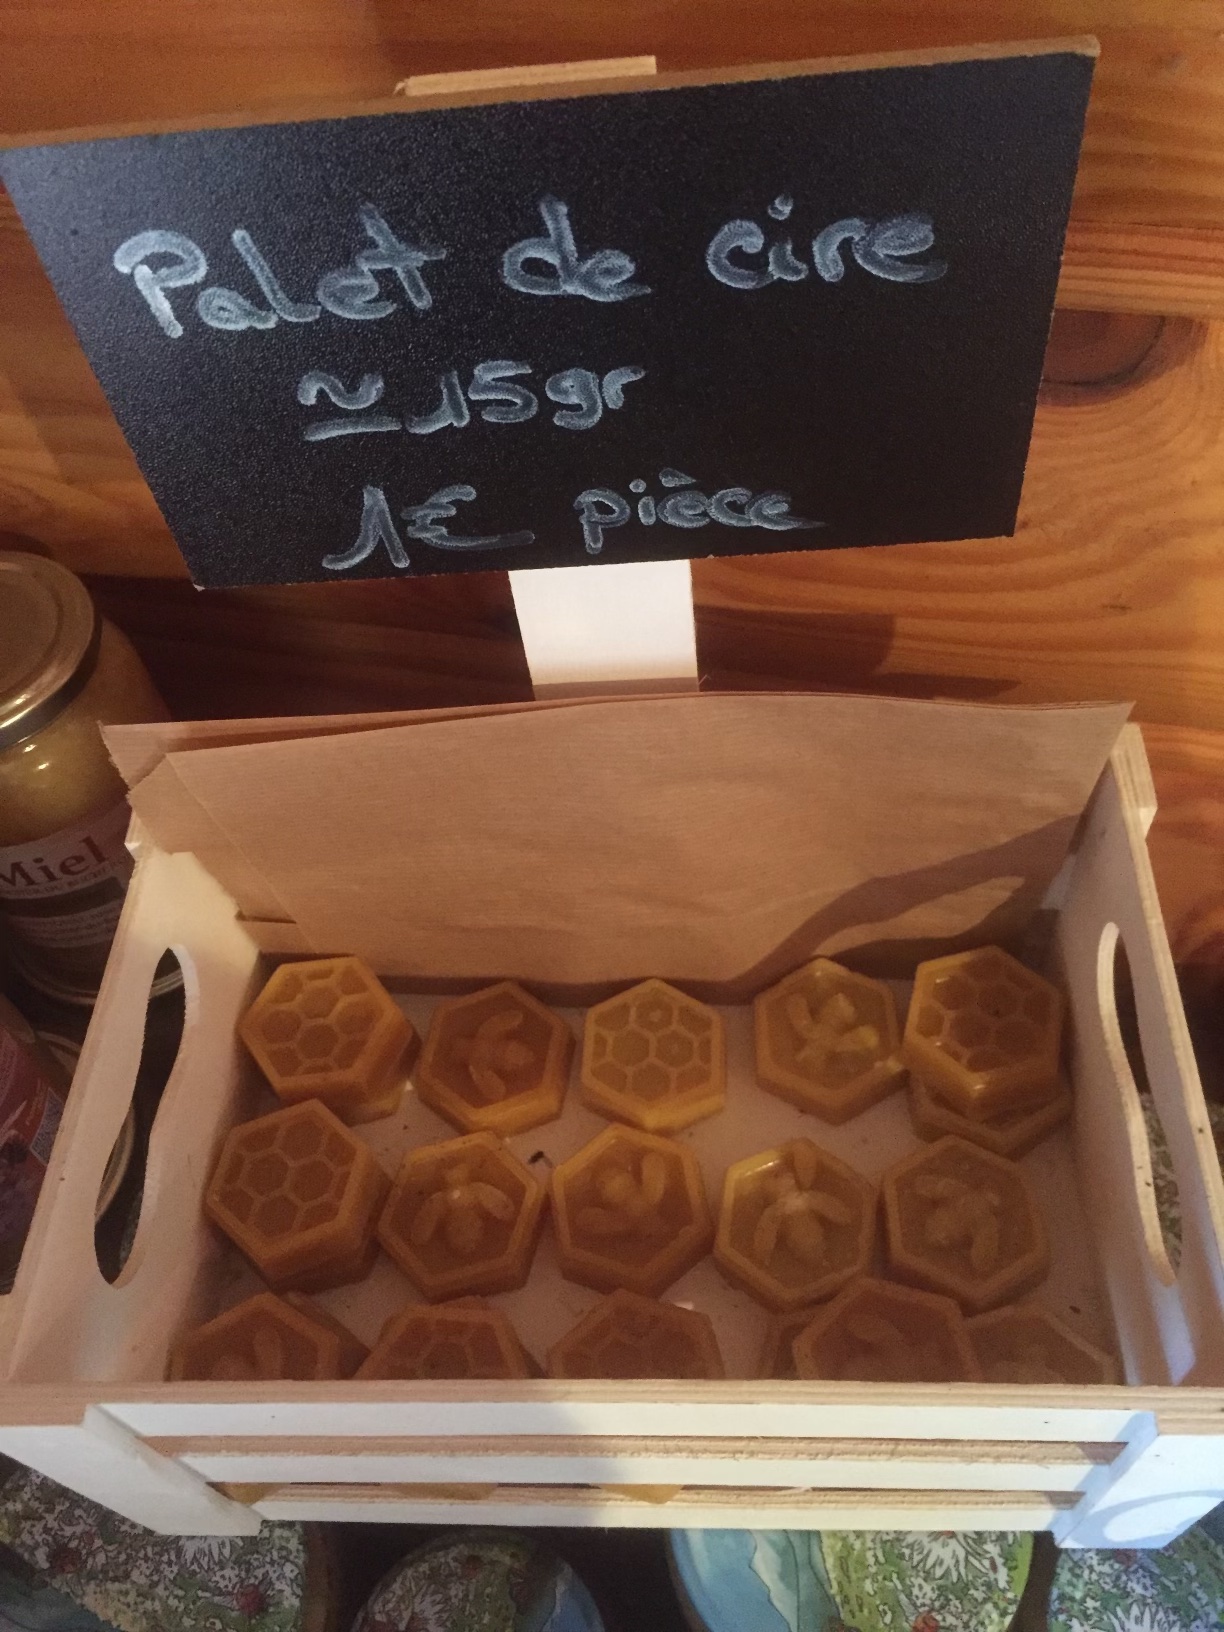 Palet de cire
≃ 15gr
1€ pièce
Miel